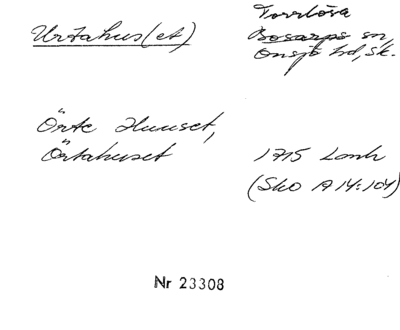 Urtahus(et)
Torrlösa
Bosarps sn,
Onsjö hd, Sk.
Örte Huuset,
Örtahuset
1715 Lmh
(Sko A 14:104)
Nr 23308